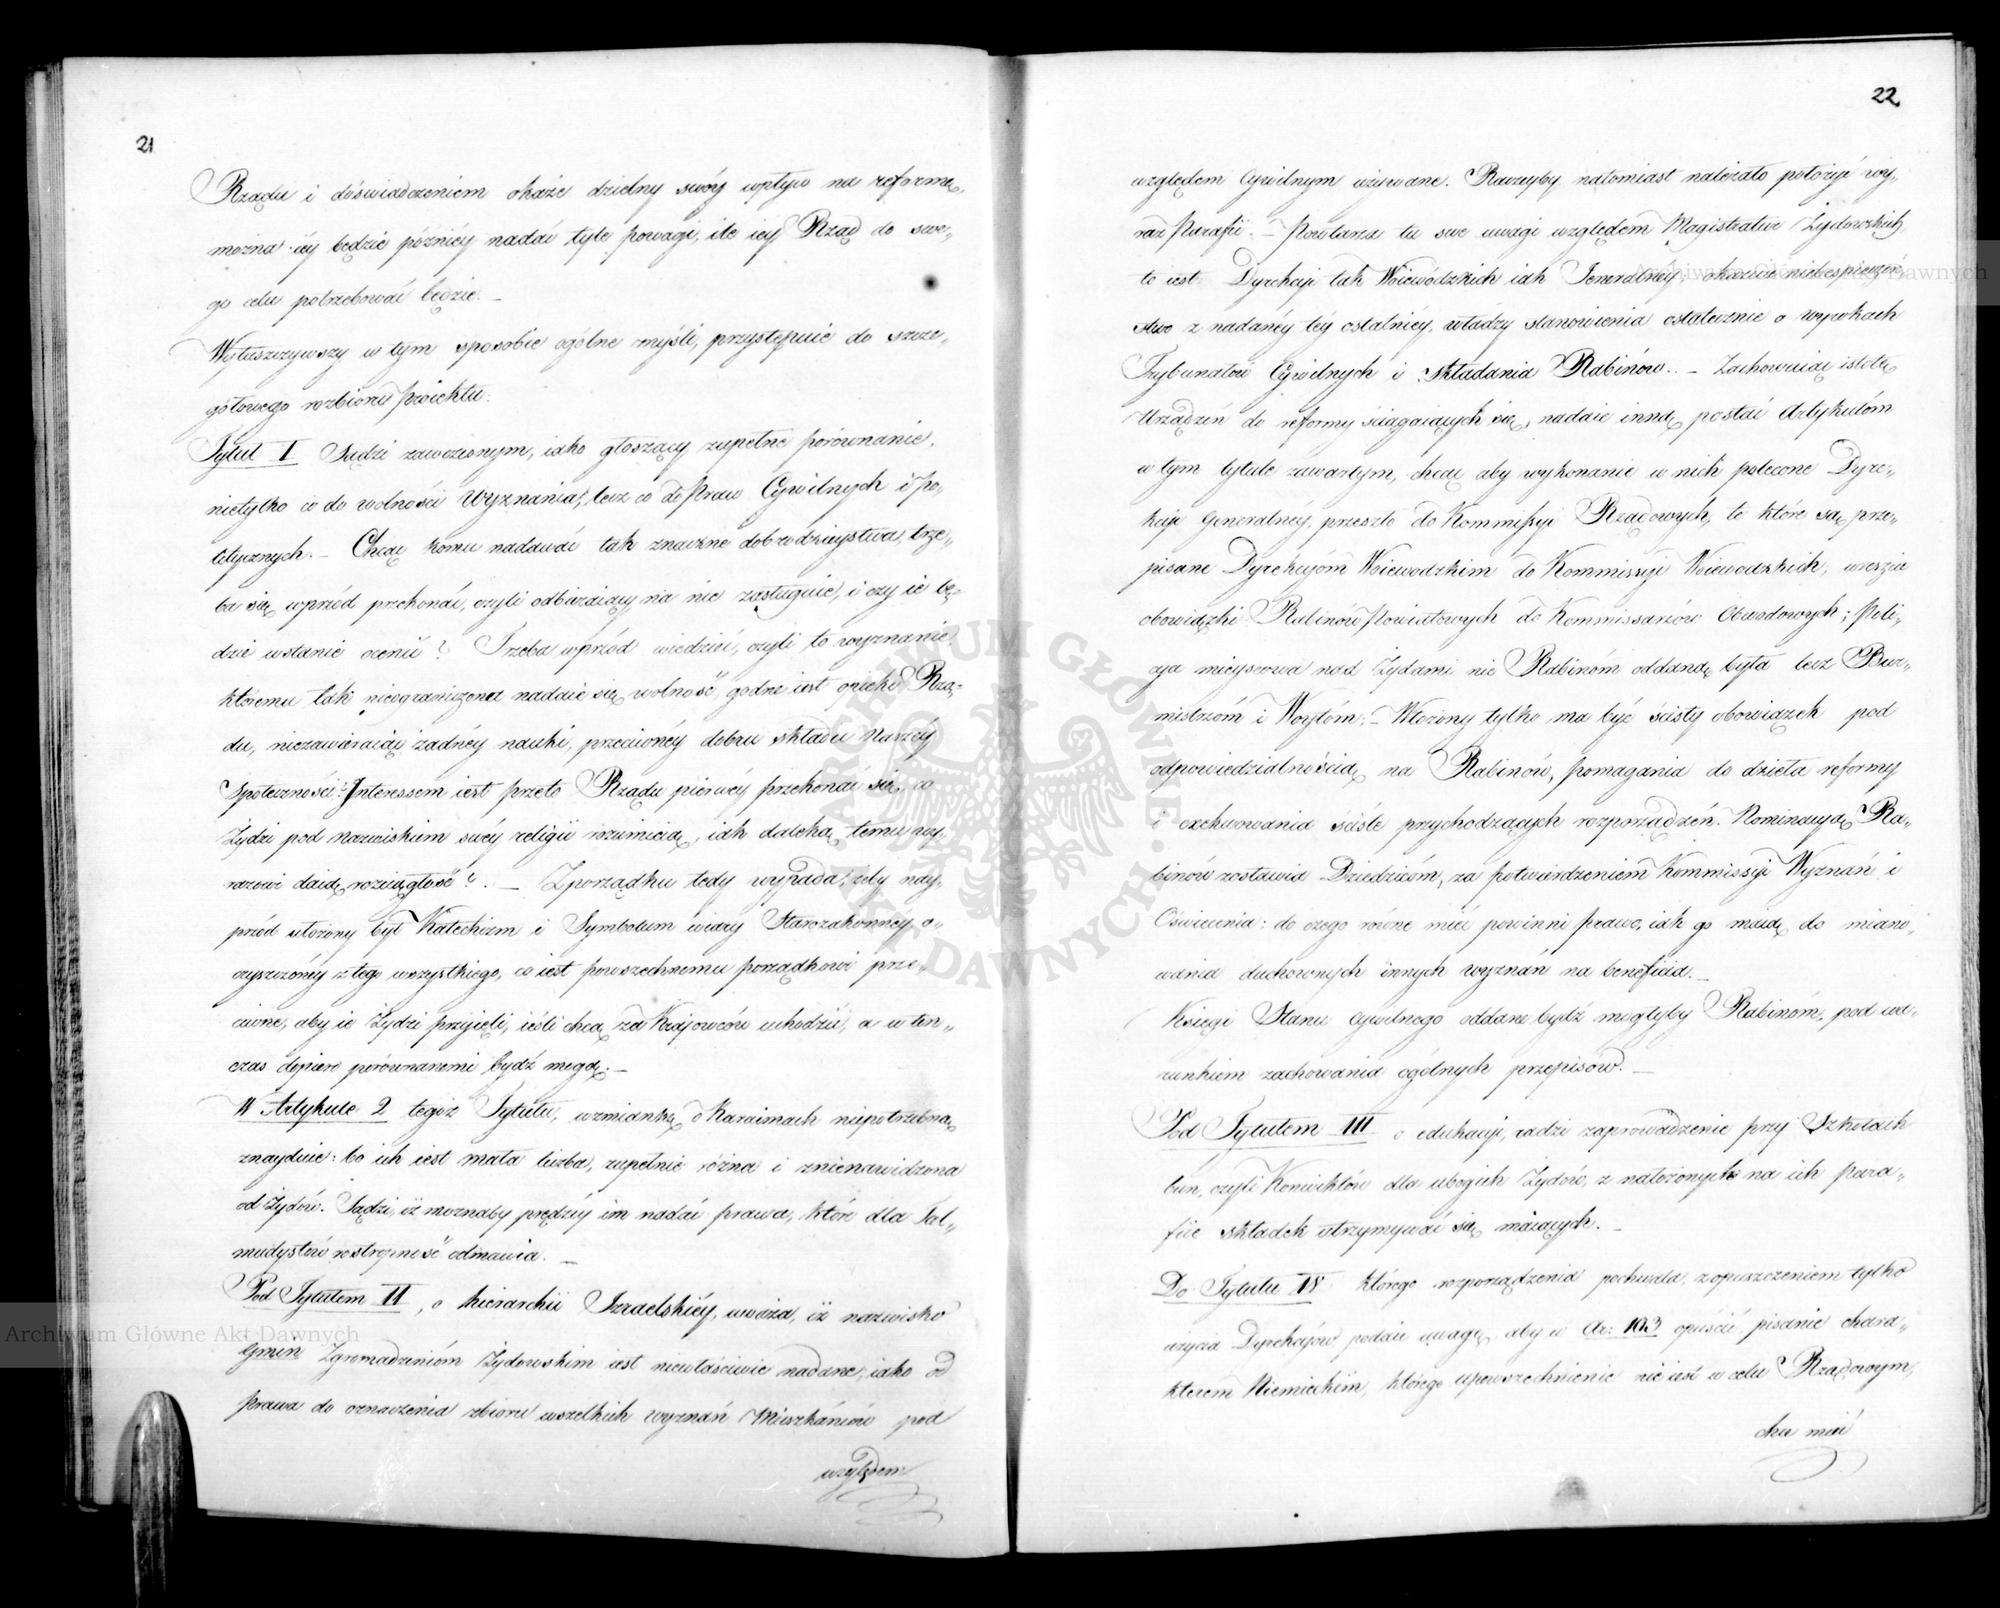 21
Rządu i doświadczeniem okaże dzielny swóy wpływ na reformę,
można iey będzie późniéy nadać tyle powagi, ile iey Rząd do swe-
go celu potrzebować będzie. —
Wyłuszczywszy w tym sposobie ogólne myśli, przystępuie do szcze-
gółowego rozbioru proiektu.
Tytuł I Sądzi zawczesnym, iako głoszący zupełne porównanie,
nietylko co do wolności wyznania, lecz co do Praw Cywilnych i Po-
litycznych. — Chcąc komu nadawać tak znaczne dobrodzieystwa, trze-
ba się wprzód przekonać, czyli odbieraiący na nie zasługuie, i czy ie bę-
dzie wstanie ocenić? Trzeba wprzód wiedzieć, czyli to wyznanie,
któremu tak nieograniczona nadaie się wolność, godne iest opieki Rzą-
du, niezawieraiąc żadnéy nauki, przeciwnéy dobru składu naszéy
Społeczności? Interessem iest przeto Rządu pierwéy przekonać się, co
Żydzi pod nazwiskiem swéy religii rozumieią, iak daleką temu wy-
razowi daią rozciągłość? . — Z porządku tedy wypada, żeby nay-
przód ułożony był Katechizm i Symbolum wiary Starozakonnéy, o-
czyszczonéy z tego wszystkiego, co iest powszechnemu porządkowi prze-
ciwne, aby ie Żydzi przyięli, ieśli chcą za Kraiowców uchodzić, a w ten-
czas dopiero porównanemi bydź mogą. —
W Artykule 2 tegoż Tytułu, wzmiankę o Karaimach niepotrzebną
znayduie: bo ich iest mała liczba, zupełnie różna i znienawidzona
od Żydów. Sądzi, iż możnaby prędzéy im nadać prawa, które dla Tal-
mudystów rostropność odmawia. —
Pod Tytułem II, o hierarchii Izraelskiéy, uważa, iż nazwisko
Gmin Zgromadzeniom Żydowskim iest niewłaściwie nadane, iako od
prawa do oznaczenia zbioru wszelkich wyznań Mieszkańców pod
względem
22
względem Cywilnym używane. Raczeyby natomiast należało położyć wy-
raz Parafii. — Powtarza tu swe uwagi względem Magistratur Żydowskich,
to iest: Dyrekcyi tak Woiewódzkich iak Jeneralnéy, okazuie niebespieczeń-
stwo z nadanéy téy ostatniéy, władzy stanowienia ostatecznie o wyrokach
Trybunałów Cywilnych i składania Rabinów. — Zachowuiąc istotę
Urządzeń do reformy ściągaiących się, nadaie inną postać Artykułóm
w tym tytule zawartym, chcąc aby wykonanie w nich polecone Dyre-
kcyi Generalney, przeszło do Kommissyi Rządowych, te które są prze-
pisane Dyrekcyóm Woiewodzkim do Kommissyi Woiewodzkich, wreszcie
obowiązki Rabinów Powiatowych do Kommissarzów Obwodowych; Poli-
cya mieyscowa nad Żydami nie Rabinóm oddaną była lecz Bur-
mistrzóm i Woytóm; — Włożony tylko ma być ścisły obowiązek pod
odpowiedzialnością na Rabinów, pomagania do dzieła reformy
i exekwowania ściśle przychodzących rozporządzeń. Nominacyą Ra-
binów zostawia Dziedzicóm, za potwierdzeniem Kommissyi Wyznań i
Oświecenia: do czego równe mieć powinni prawo, iak go maią do miano-
wania duchownych innych wyznań na beneficia. —
Księgi Stanu cywilnego oddane bydź mogłyby Rabinóm, pod wa-
runkiem zachowania ogólnych przepisów. —
Pod Tytułem III o edukacyi, radzi zaprowadzenie przy Szkołach
burs, czyli Konwiktów dla ubogich Żydów, z nałożonych na ich para-
fiie składek utrzymywać się maiących. —
Do Tytułu IV którego rozporządzenia pochwala, z opuszczeniem tylko
użycia Dyrekcyów podaie uwagę, aby w Ar: 103 opuścić pisanie chara-
kterem Niemieckim, którego upowszechnienie nie iest w celu Rządowym,
chce mieć
ARCHIWUM GŁÓWNE AKT DAWNYCH
Archiwum Główne Akt Dawnych
Archiwum Główne Akt Dawnych